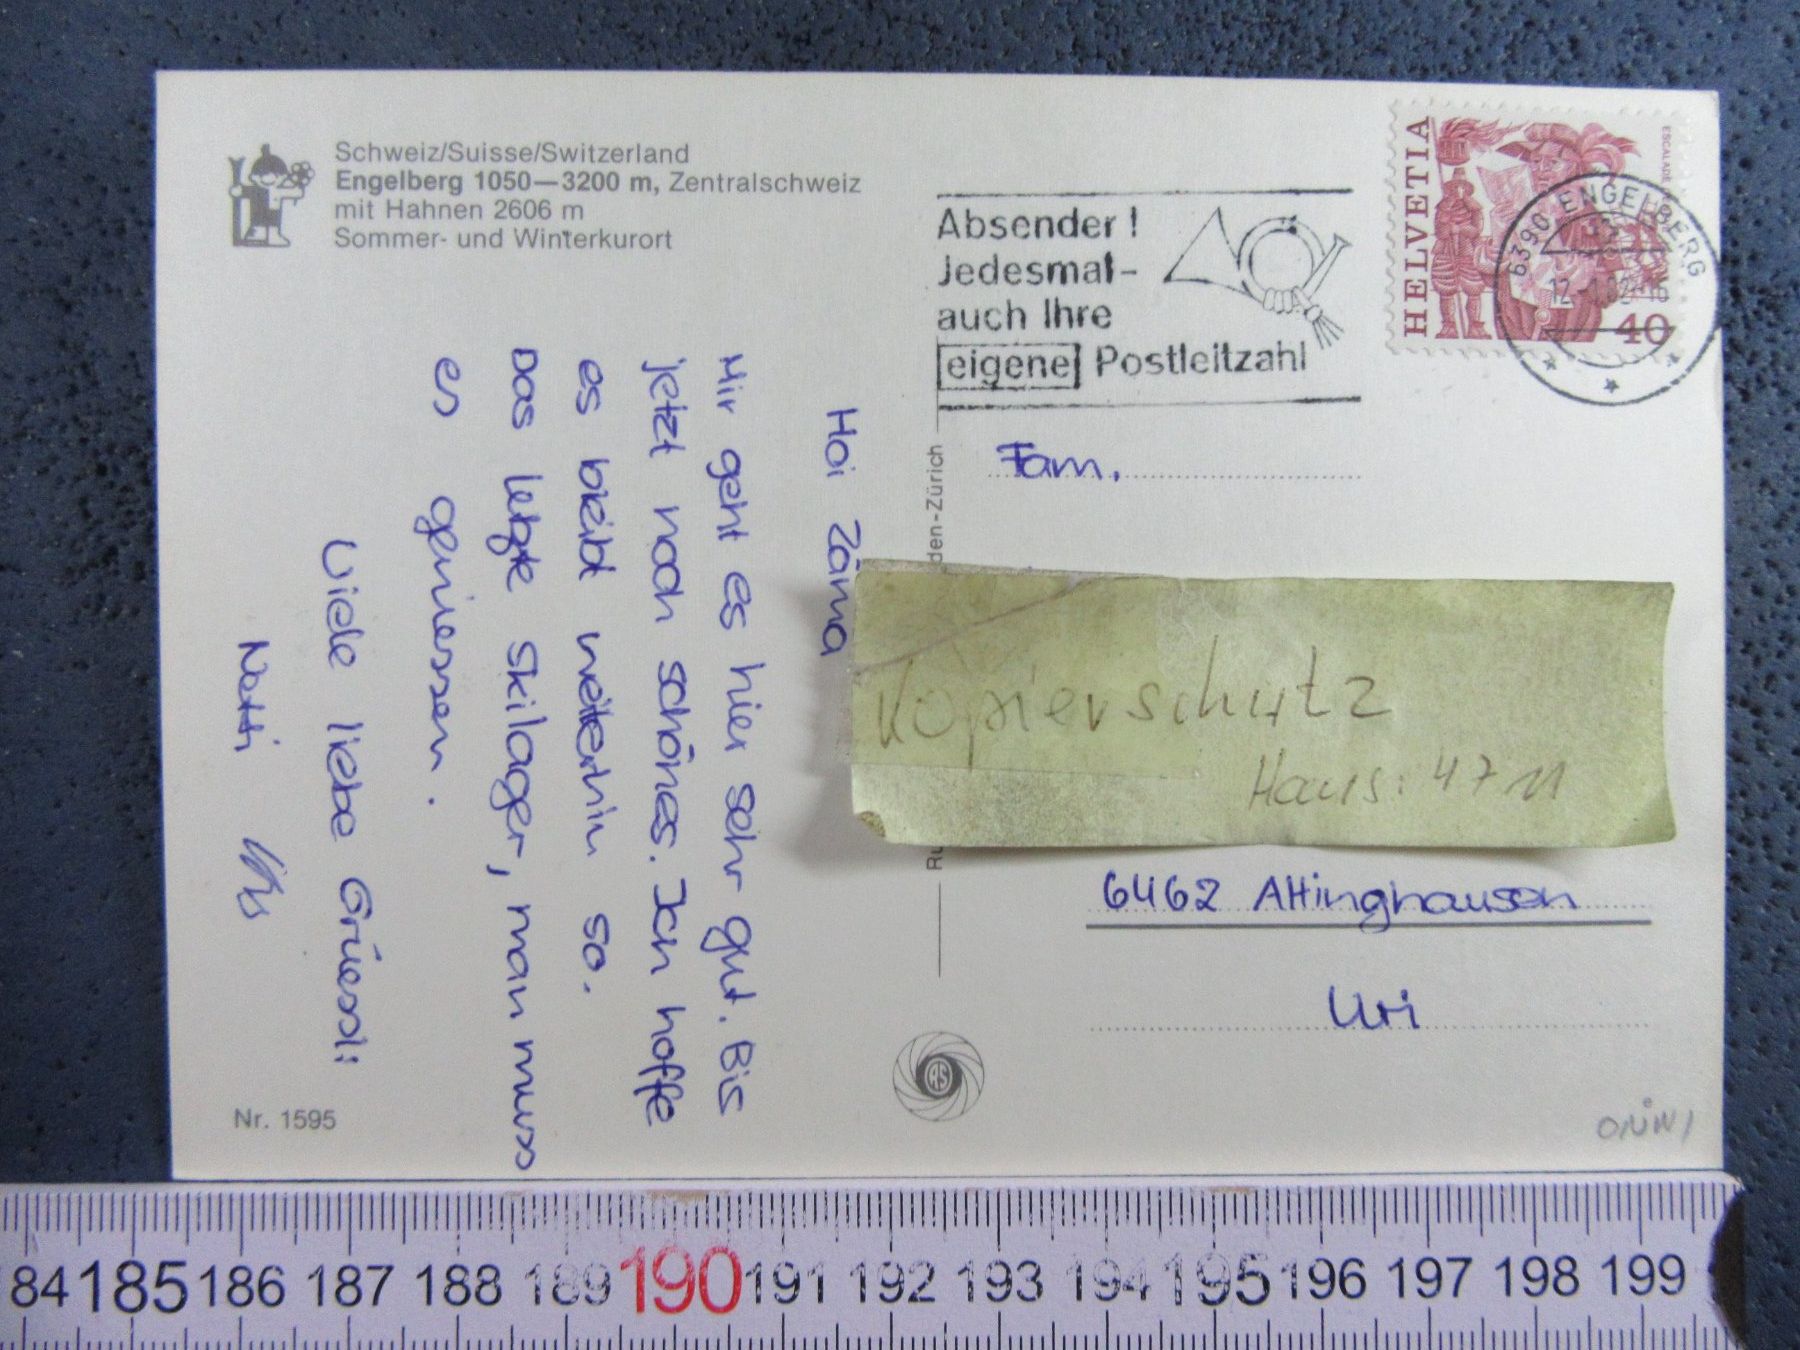 Schweiz/Suisse/Switzerland
Engelberg 1050—3200 m, Zentralschweiz
mit Hahnen 2606 m
Sommer- und Winterkurort
Absender !
Jedesmal-
auch Ihre
eigene Postleitzahl
HELVETIA
ESCALADE
40
6390 ENGELBERG
12.-1.82-16
Hoi Zäma
Mir geht es hier sehr gut. Bis
jetzt noch schönes. Ich hoffe
es bleibt weiterhin so.
Das letzte Skilager, man muss
es geniessen.
Viele liebe Grüessli
Fam.
Kopierschutz
Haus: 4711
6462 Attinghausen
Uri
den-Zürich
Ru
RS
Nr. 1595
84 185 186 187 188 189 190 191 192 193 194 195 196 197 198 199